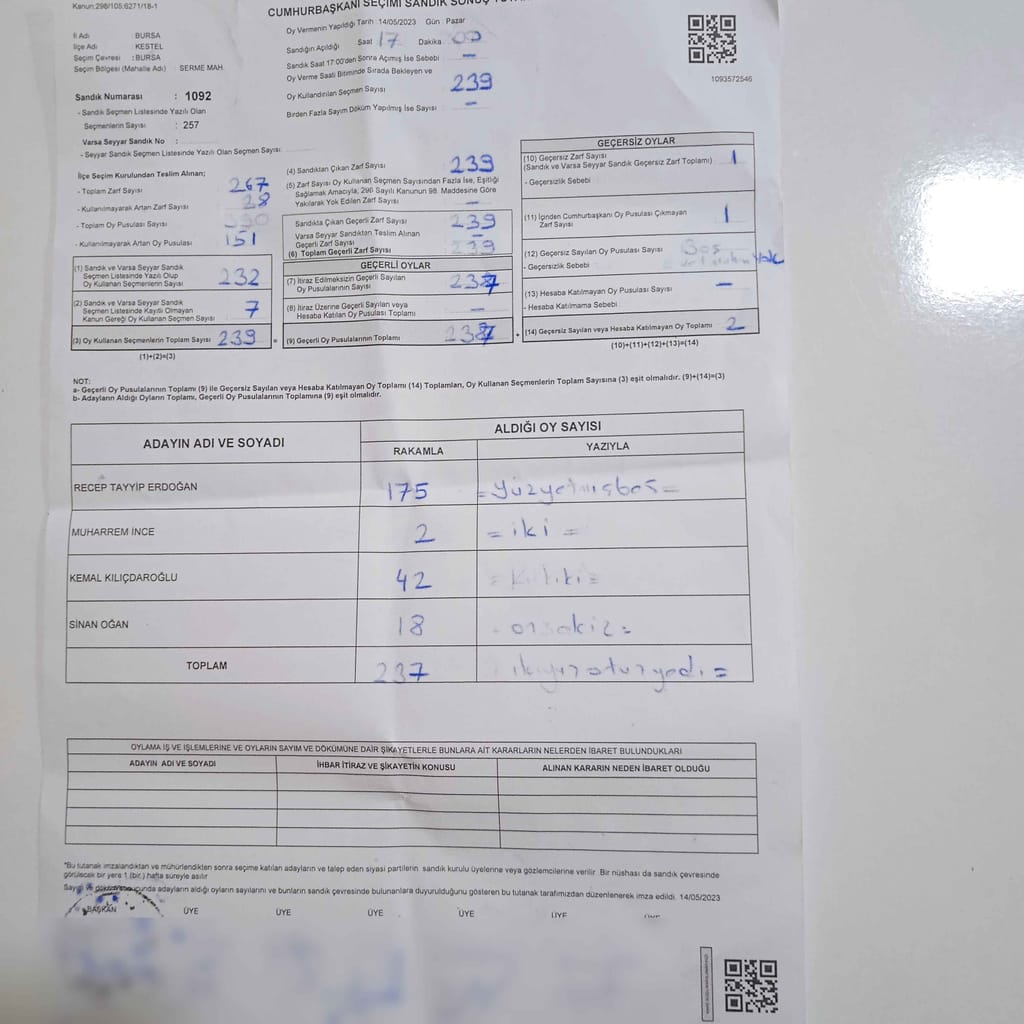 Kanun:298/105:6271/18-1
CUMHURBAŞKANI SEÇİMİ SANDIK SONUÇ
Oy Vermenin Yapıldığı Tarih : 14/05/2023 Gün : Pazar
Sandığın Açıldığı Saat 17 Dakika 00
Sandık Saat 17:00'den Sonra Açımış İse Sebebi —
Oy Verme Saati Bitiminde Sırada Bekleyen ve
Oy Kullandırılan Seçmen Sayısı 239
Birden Fazla Sayım Döküm Yapılmış İse Sayısı —
1093572546
İl Adı : BURSA
İlçe Adı : KESTEL
Seçim Çevresi : BURSA
Seçim Bölgesi (Mahalle Adı) : SERME MAH.
Sandık Numarası : 1092
- Sandık Seçmen Listesinde Yazılı Olan
Seçmenlerin Sayısı : 257
Varsa Seyyar Sandık No :
- Seyyar Sandık Seçmen Listesinde Yazılı Olan Seçmen Sayısı:
İlçe Seçim Kurulundan Teslim Alınan;
- Toplam Zarf Sayısı 267
- Kullanılmayarak Artan Zarf Sayısı 28
- Toplam Oy Pusulası Sayısı
- Kullanılmayarak Artan Oy Pusulası 151
(1) Sandık ve Varsa Seyyar Sandık
Seçmen Listesinde Yazılı Olup
Oy Kullanan Seçmenlerin Sayısı 232
(2) Sandık ve Varsa Seyyar Sandık
Seçmen Listesinde Kayıtlı Olmayan
Kanun Gereği Oy Kullanan Seçmen Sayısı 7
(3) Oy Kullanan Seçmenlerin Toplam Sayısı 239 =
(1)+(2)=(3)
(4) Sandıktan Çıkan Zarf Sayısı 239
(5) Zarf Sayısı Oy Kullanan Seçmen Sayısından Fazla İse, Eşitliği
Sağlamak Amacıyla, 298 Sayılı Kanunun 98. Maddesine Göre
Yakılarak Yok Edilen Zarf Sayısı —
Sandıkta Çıkan Geçerli Zarf Sayısı 239
Varsa Seyyar Sandıktan Teslim Alınan
Geçerli Zarf Sayısı —
(6) Toplam Geçerli Zarf Sayısı 239
GEÇERLİ OYLAR
(7) İtiraz Edilmeksizin Geçerli Sayılan
Oy Pusulalarının Sayısı 237
(8) İtiraz Üzerine Geçerli Sayılan veya
Hesaba Katılan Oy Pusulası Toplamı —
(9) Geçerli Oy Pusulalarının Toplamı 237 +
GEÇERSİZ OYLAR
(10) Geçersiz Zarf Sayısı
(Sandık ve Varsa Seyyar Sandık Geçersiz Zarf Toplamı) 1
- Geçersizlik Sebebi
(11) İçinden Cumhurbaşkanı Oy Pusulası Çıkmayan
Zarf Sayısı 1
(12) Geçersiz Sayılan Oy Pusulası Sayısı
- Geçersizlik Sebebi
(13) Hesaba Katılmayan Oy Pusulası Sayısı —
- Hesaba Katılmama Sebebi
(14) Geçersiz Sayılan veya Hesaba Katılmayan Oy Toplamı 2
(10)+(11)+(12)+(13)=(14)
NOT:
a- Geçerli Oy Pusulalarının Toplamı (9) ile Geçersiz Sayılan veya Hesaba Katılmayan Oy Toplamı (14) Toplamları, Oy Kullanan Seçmenlerin Toplam Sayısına (3) eşit olmalıdır. (9)+(14)=(3)
b- Adayların Aldığı Oyların Toplamı, Geçerli Oy Pusulalarının Toplamına (9) eşit olmalıdır.
ADAYIN ADI VE SOYADI
ALDIĞI OY SAYISI
RAKAMLA YAZIYLA
RECEP TAYYİP ERDOĞAN 175 =Yüzyetmişbeş=
MUHARREM İNCE 2 = iki =
KEMAL KILIÇDAROĞLU 42
SİNAN OĞAN 18 onsekiz =
TOPLAM 237 ikiyüzotuzyedi =
OYLAMA İŞ VE İŞLEMLERİNE VE OYLARIN SAYIM VE DÖKÜMÜNE DAİR ŞİKAYETLERLE BUNLARA AİT KARARLARIN NELERDEN İBARET BULUNDUKLARI
ADAYIN ADI VE SOYADI İHBAR İTİRAZ VE ŞİKAYETİN KONUSU ALINAN KARARIN NEDEN İBARET OLDUĞU
*Bu tutanak imzalandıktan ve mühürlendikten sonra seçime katılan adayların ve talep eden siyasi partilerin sandık kurulu üyelerine veya gözlemcilerine verilir. Bir nüshası da sandık çevresinde
görülecek bir yere 1 (bir) hafta süreyle asılır
Sayım ve dökümü sonucunda adayların aldığı oyların sayılarını ve bunların sandık çevresinde bulunanlara duyurulduğunu gösteren bu tutanak tarafımızdan düzenlenerek imza edildi. 14/05/2023
BAŞKAN ÜYE ÜYE ÜYE ÜYE ÜYE ÜYE